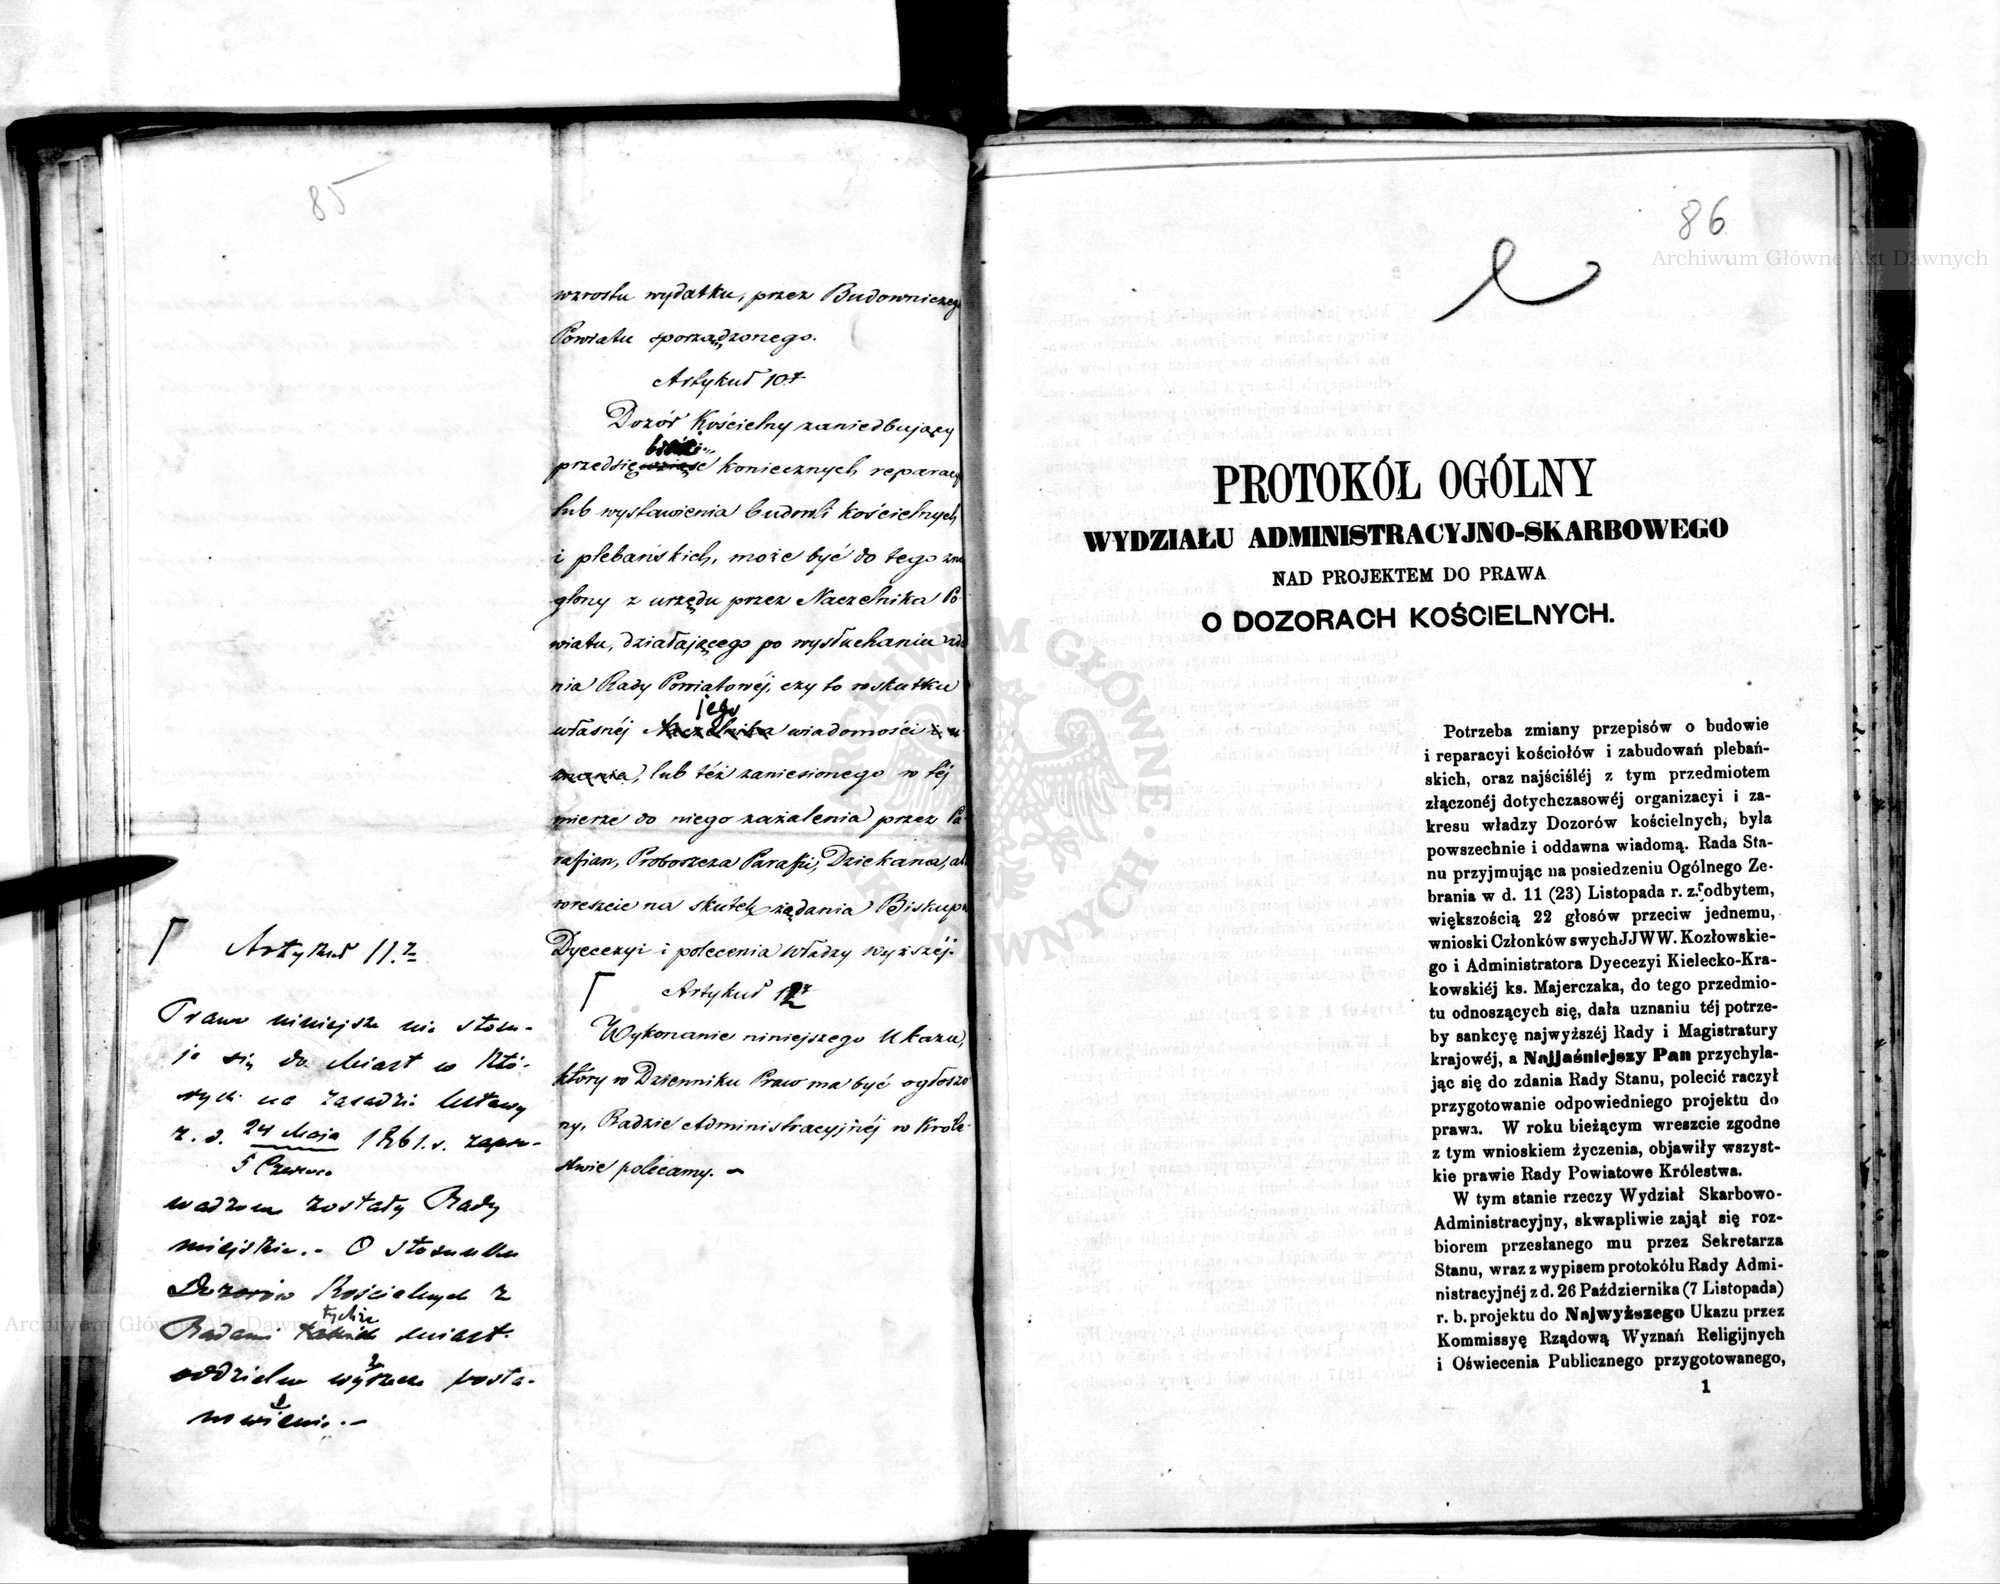 85
wzrostu wydatku, przez Budowniczego
Powiatu sporządzonego.
Artykuł 10.
Dozór Kościelny zaniedbujący
przedsię koniecznych reparacy
lub wystawienia budowli kościelnych
i plebańskich, może być do tego zna
glony z urzędu przez Naczelnika Po
wiatu, działającego po wysłuchaniu zda
nia Rady Powiatowéj, czy to wskutku
jego
własnéj Naczelnika wiadomości i u
znania, lub téż zaniesionego w téj
mierze do niego zażalenia przez Pa
rafian, Proboszcza Parafii, Dziekana, al
wreszcie na skutek żądania Biskupa
Dyecezyi i polecenia władzy wyższéj.
Artykuł 12
Wykonanie niniejszego Ukazu,
który w Dzienniku Praw ma być ogłoszo
ny, Radzie Administracyjnéj w Króle
stwie polecamy.
Artykuł 11.
Prawo niniejsze nie stosu-
je się do Miast w któ-
rych na zasadzie Ustawy
z. d. 24 Maja 1861. r. zapro-
5 Czerwca
wadzone zostały Rady
miejskie.- O stosunku
Dozorów Kościelnych z
tychże
Radami takich Miast
oddzielne wyrzecze posta-
nowienie.-
86
Archiwum Główne Akt Dawnych
PROTOKÓŁ OGÓLNY
WYDZIAŁU ADMINISTRACYJNO-SKARBOWEGO
NAD PROJEKTEM DO PRAWA
O DOZORACH KOŚCIELNYCH.
Potrzeba zmiany przepisów o budowie
i reparacyi kościołów i zabudowań plebań-
skich, oraz najściśléj z tym przedmiotem
złączonéj dotychczasowéj organizacyi i za-
kresu władzy Dozorów kościelnych, była
powszechnie i oddawna wiadomą. Rada Sta-
nu przyjmując na posiedzeniu Ogólnego Ze-
brania w d. 11 (23) Listopada r. z. odbytem,
większością 22 głosów przeciw jednemu,
wnioski Członków swych JJWW. Kozłowskie-
go i Administratora Dyecezyi Kielecko-Kra-
kowskiéj ks. Majerczaka, do tego przedmio-
tu odnoszących się, dała uznaniu téj potrze-
by sankcyę najwyższéj Rady i Magistratury
krajowéj, a Najjaśniejszy Pan przychyla-
jąc się do zdania Rady Stanu, polecić raczył
przygotowanie odpowiedniego projektu do
prawa. W roku bieżącym wreszcie zgodne
z tym wnioskiem życzenia, objawiły wszyst-
kie prawie Rady Powiatowe Królestwa.
W tym stanie rzeczy Wydział Skarbowo-
Administracyjny, skwapliwie zajął się roz-
biorem przesłanego mu przez Sekretarza
Stanu, wraz z wypisem protokółu Rady Admi-
nistracyjnéj z d. 26 Października (7 Listopada)
r. b. projektu do Najwyższego Ukazu przez
Kommissyę Rządową Wyznań Religijnych
i Oświecenia Publicznego przygotowanego,
1
Archiwum Główne Akt Dawnych
ARCHIWUM GŁÓWNE AKT DAWNYCH